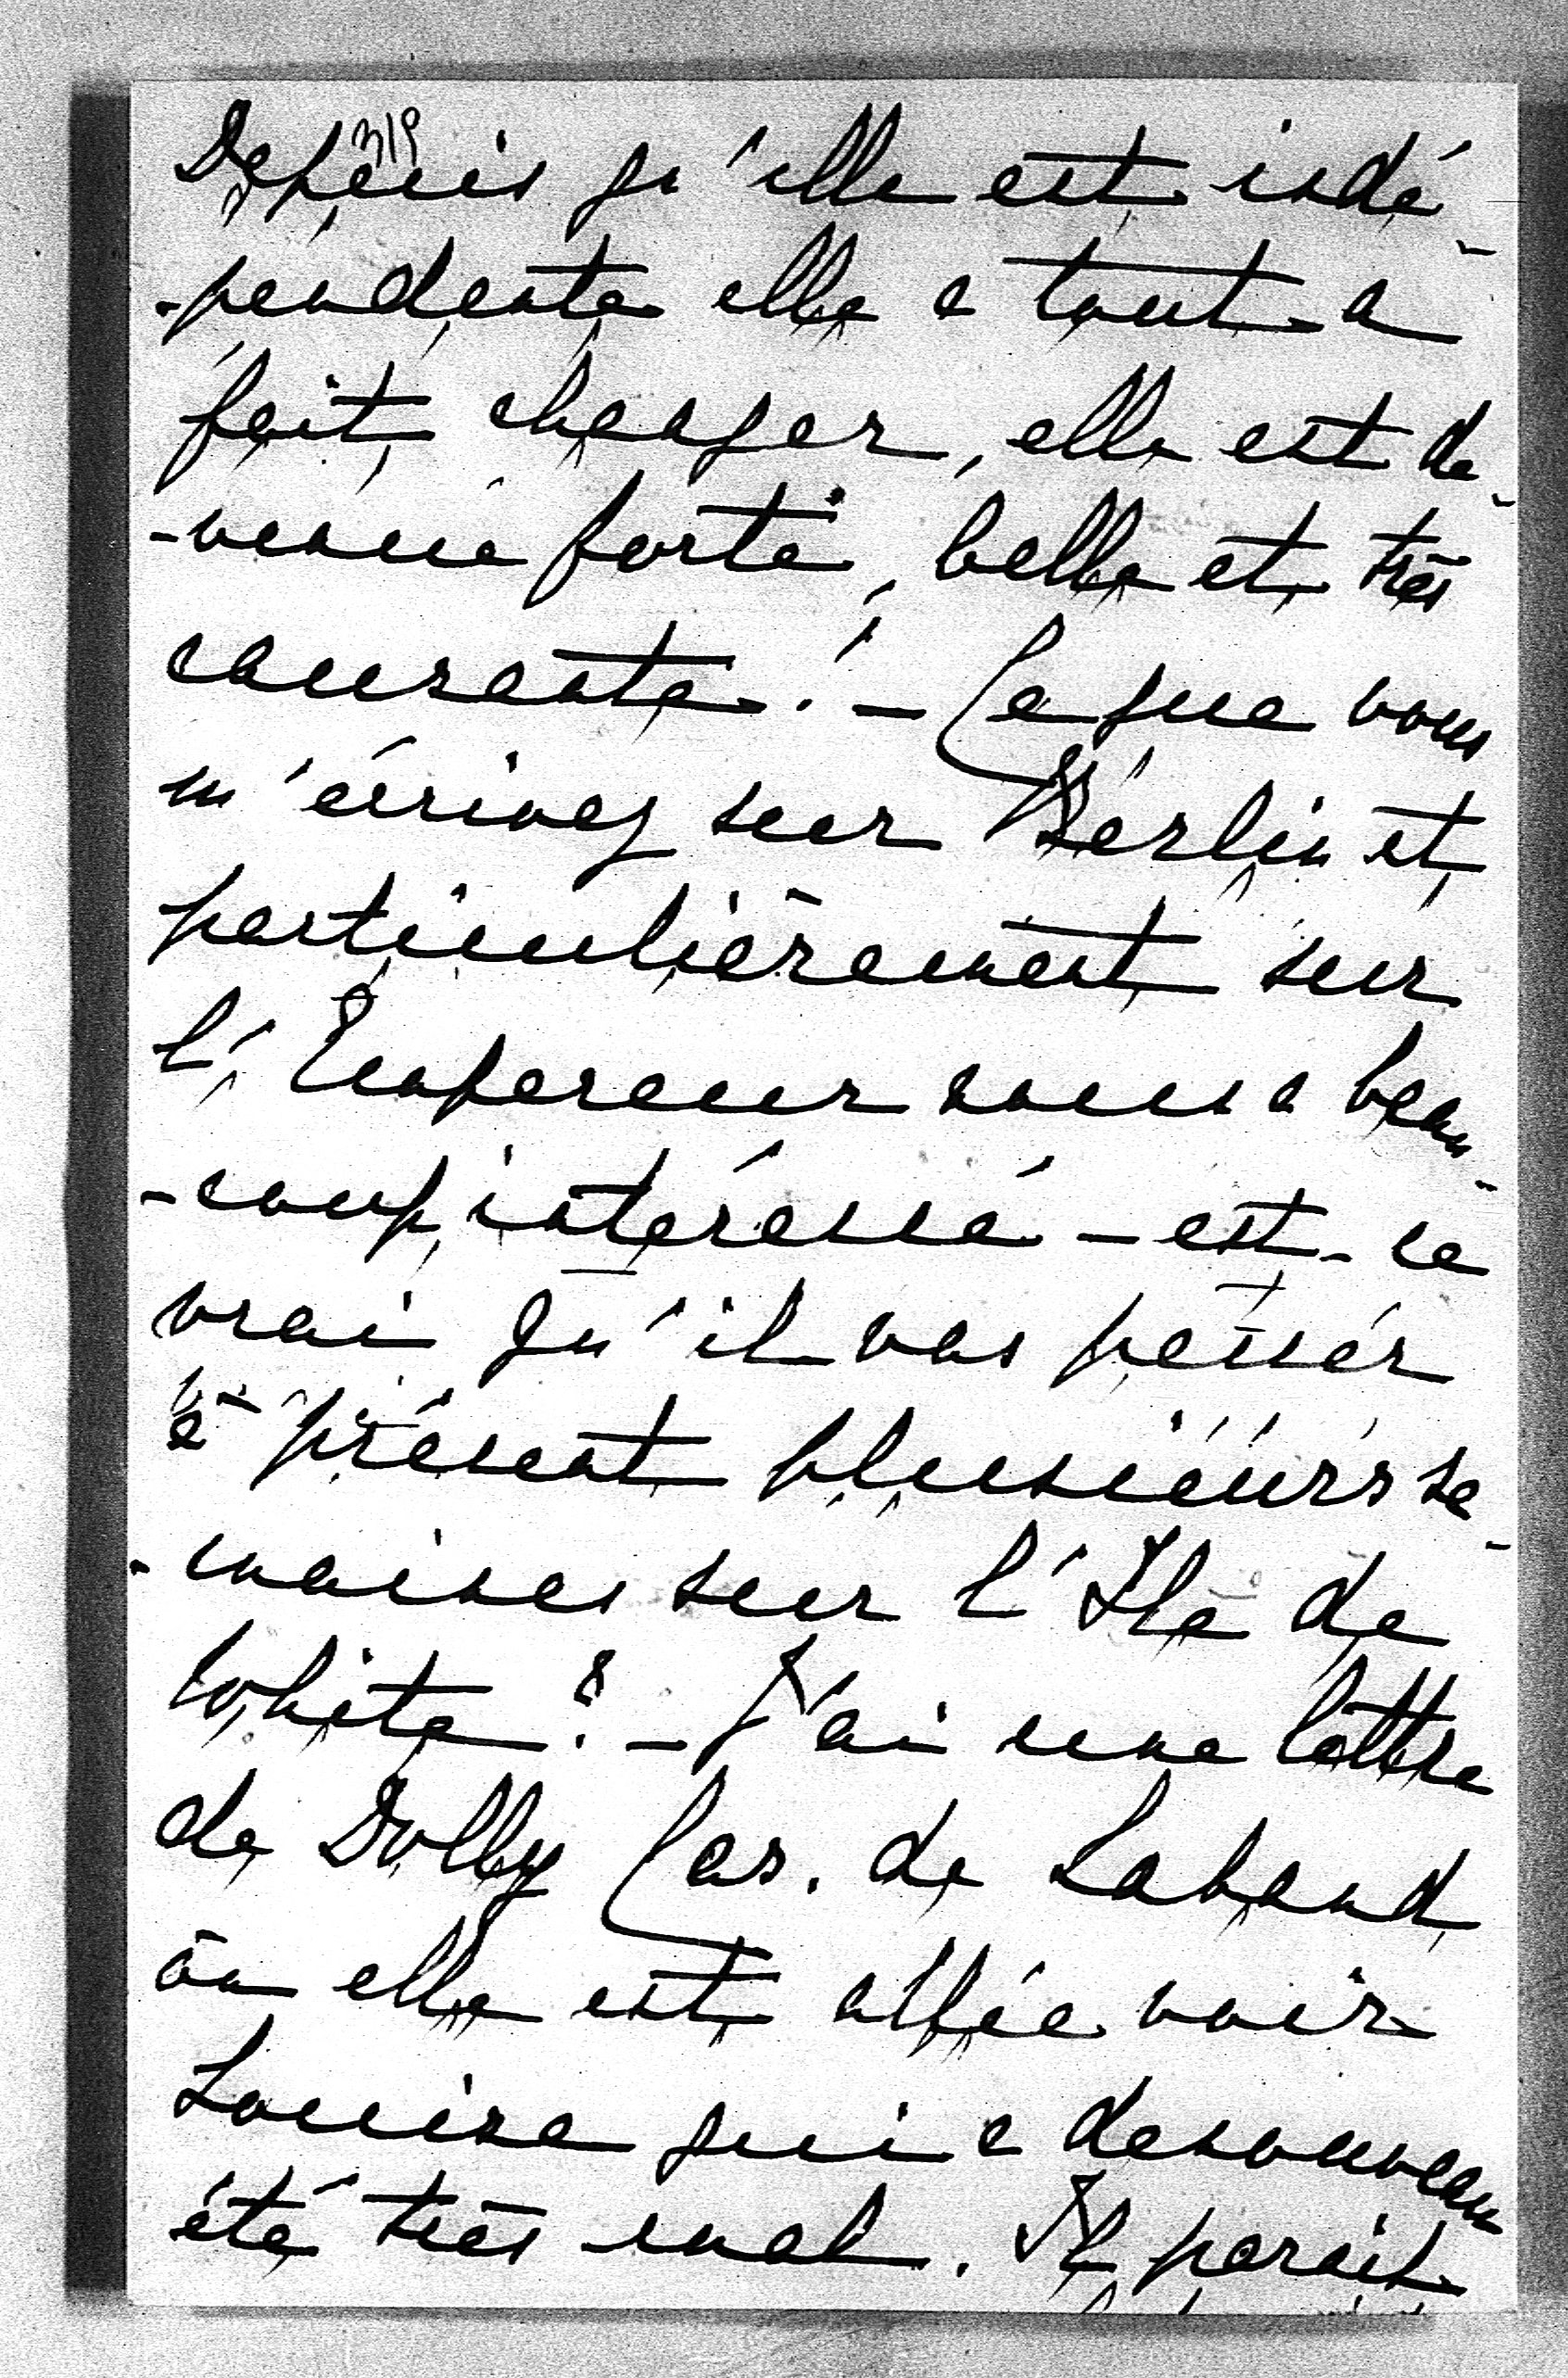 319
Depuis qu'elle est indé-
-pendente elle a tout-a
fait changer, elle est de-
-venue forte, belle et très
courante! - Ce que vous
m'écrivez sur Berlin et
particulièrement sur
l'Empereur nous a beau-
-coup intéressé - est-ce
vrai qu'il vas passer
à présent plusieurs se-
-maines sur l'Ile de
White? - J'ai une lettre
de Dolly Car. de Laband
où elle est allée voir
Louise qui a denouveau
été très mal. Il parait